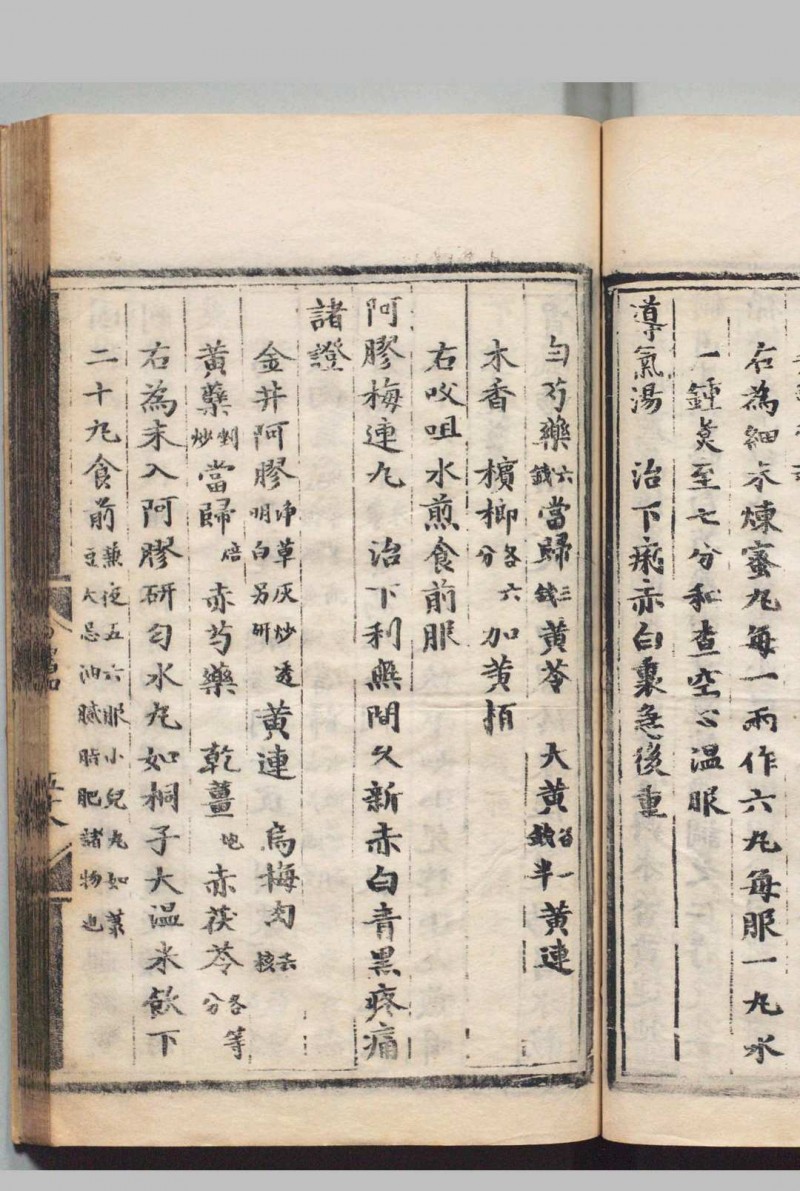 右為細末煉蜜丸每一兩作六丸每服一丸水
一鍾煎至七分和查空心溫服
導氣湯　治下痢赤白裏急後重
白芍藥六錢當歸三錢黃芩　大黃各一錢半黃連
木香　檳榔各六分加黃栢
右㕮咀水煎食前服
阿膠梅連丸　治下利無問久新赤白青黑疼痛
諸證
金井阿膠净草灰炒透明白另研黃連　烏梅肉去核
黃蘗剉炒當歸焙赤芍藥　乾薑炮赤茯苓各等分
右為末入阿膠研匀水丸如桐子大溫米飲下
二十九食前兼夜五六服小兒丸如菉豆大忌油膩脂肥諸物也